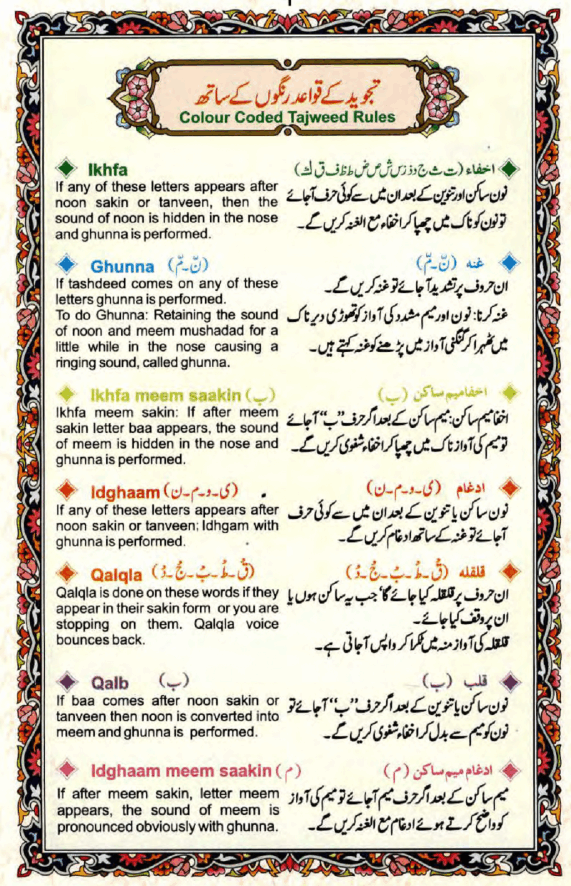 تجوید کے قواعد رنگوں کے ساتھ
Colour Coded Tajweed Rules
Ikhfa
If any of these letters appears after
noon sakin or tanveen, then the
sound of noon is hidden in the nose
and ghunna is performed.
اخفاء (ت ث ج د ذ ز س ش ص ض ط ظ ف ق ك)
نون ساکن اور تنوین کے بعد ان میں سے کوئی حرف آجائے
تو نون کو ناک میں چھپا کر اخفاء مع الغنہ کریں گے۔
Ghunna (نّ۔مّ)
If tashdeed comes on any of these
letters ghunna is performed.
To do Ghunna: Retaining the sound
of noon and meem mushadad for a
little while in the nose causing a
ringing sound, called ghunna.
غنہ (نّ۔مّ)
ان حروف پر تشدید آجائے تو غنہ کریں گے۔
غنہ کرنا: نون اور میم مشدد کی آواز کو تھوڑی دیر ناک
میں ٹھہرا کر گنگنی آواز میں پڑھنے کو غنہ کہتے ہیں۔
Ikhfa meem saakin (ب)
Ikhfa meem sakin: If after meem
sakin letter baa appears, the sound
of meem is hidden in the nose and
ghunna is performed.
اخفا میم ساکن (ب)
اخفا میم ساکن: میم ساکن کے بعد اگر حرف ”ب“ آجائے
تو میم کی آواز ناک میں چھپا کر اخفاء شفوی کریں گے۔
Idghaam (ی۔و۔م۔ن)
If any of these letters appears after
noon sakin or tanveen; Idhgam with
ghunna is performed.
ادغام (ی۔و۔م۔ن)
نون ساکن یا تنوین کے بعد ان میں سے کوئی حرف
آجائے تو غنہ کے ساتھ ادغام کریں گے۔
Qalqla (قْ۔طْ۔بْ۔جْ۔دْ)
Qalqla is done on these words if they
appear in their sakin form or you are
stopping on them. Qalqla voice
bounces back.
قلقلہ (قْ۔طْ۔بْ۔جْ۔دْ)
ان حروف پر قلقلہ کیا جائے گا جب یہ ساکن ہوں یا
ان پر وقف کیا جائے۔
قلقلہ کی آواز منہ میں ٹکرا کر واپس آجاتی ہے۔
Qalb (ب)
If baa comes after noon sakin or
tanveen then noon is converted into
meem and ghunna is performed.
قلب (ب)
نون ساکن یا تنوین کے بعد اگر حرف ”ب“ آجائے تو
نون کو میم سے بدل کر اخفاء شفوی کریں گے۔
Idghaam meem saakin (م)
If after meem sakin, letter meem
appears, the sound of meem is
pronounced obviously with ghunna.
ادغام میم ساکن (م)
میم ساکن کے بعد اگر حرف میم آجائے تو میم کی آواز
کو واضح کرتے ہوئے ادغام مع الغنہ کریں گے۔